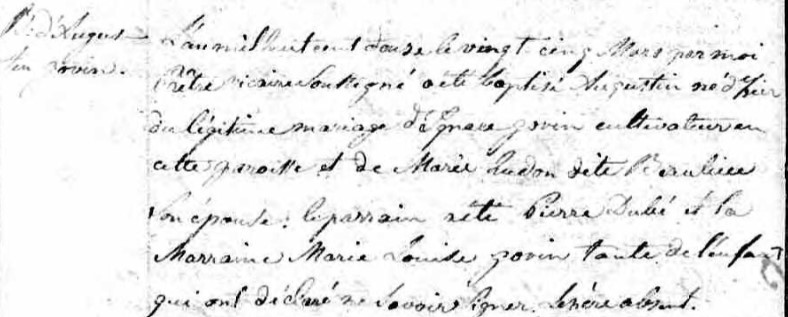 Bt. d'Augus-
tin govin.
L'an mil huit cent douze le vingt cinq Mars par moi
Prêtre vicaire soussigné a été baptisé Augustin né d'hier
du légitime mariage d'Ignace govin cultivateur en
cette paroisse et de Marie hudon dite Beaulieu
son épouse : le parrain a été Pierre Dubé et la
Marraine Marie Louise govin tante de l'enfant
qui ont déclaré ne savoir signer. Le père absent.